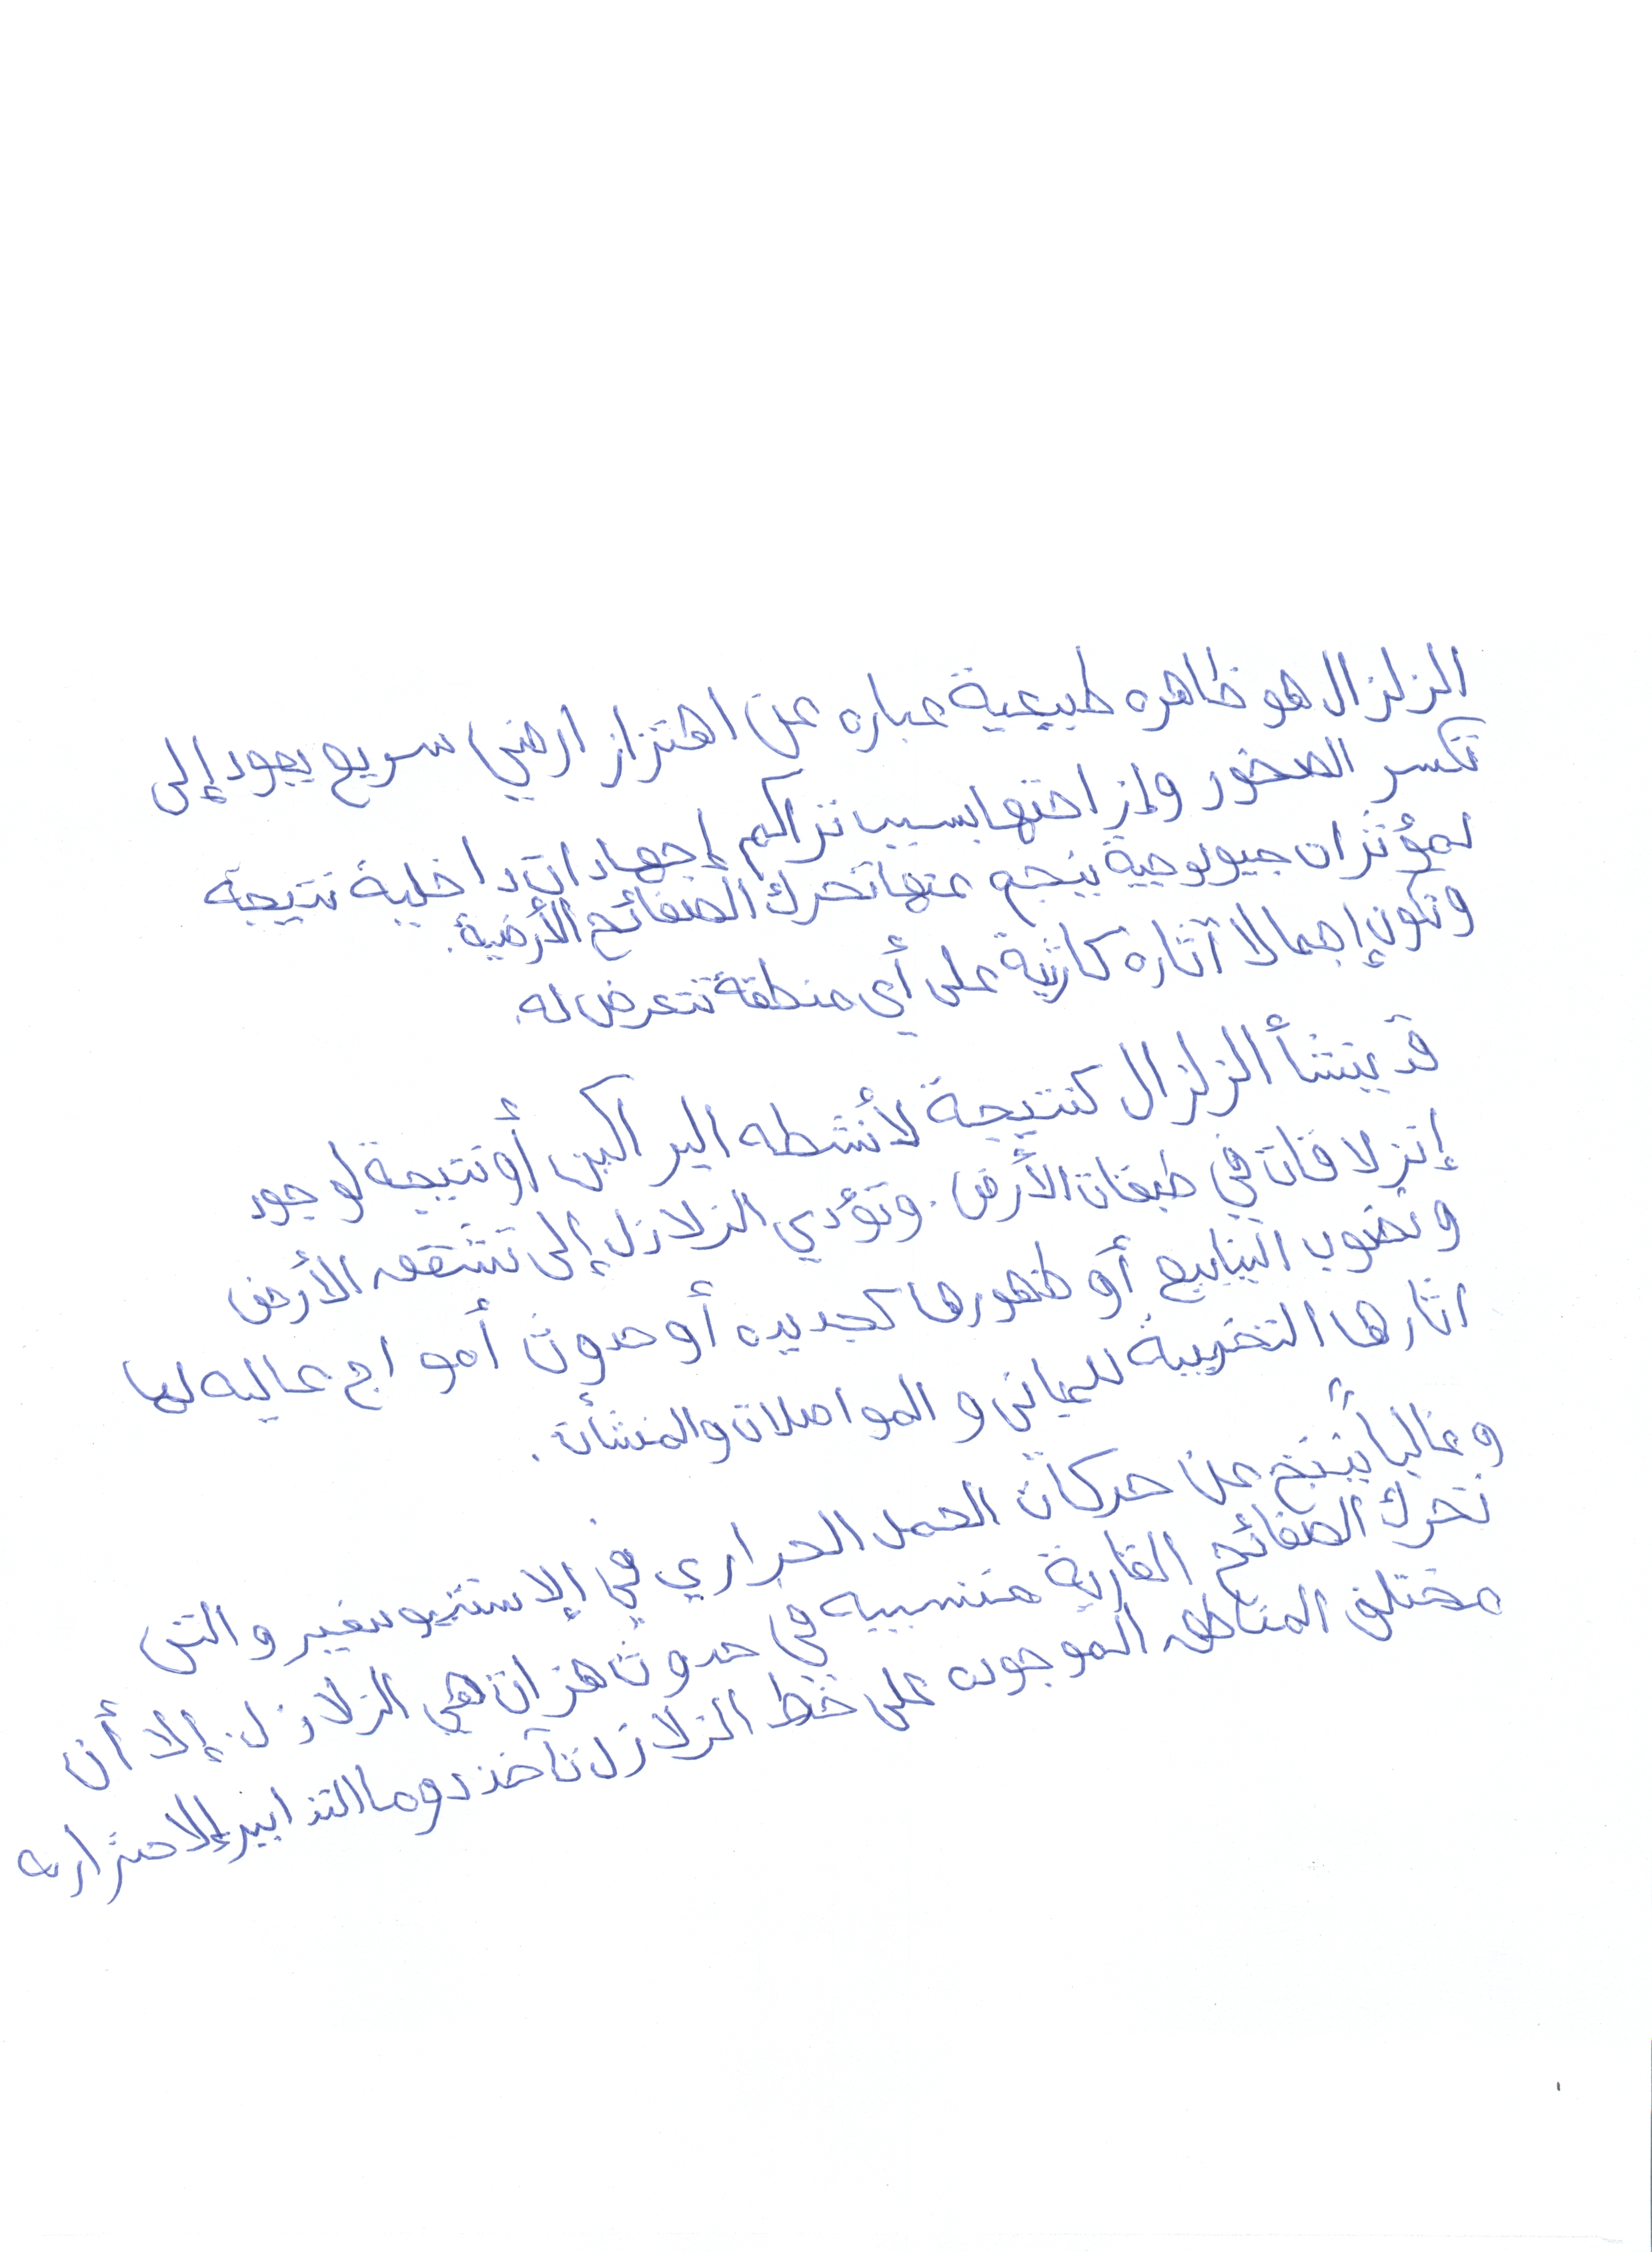 الزلزال هو ظاهره طبيعية عباره عن اهتزاز ارضي سريع يعود إلى
تكسر الصخور وإزاحتها بسبب تراكم إجهادات داخلية نتيجة
لمؤثرات جيولوجية ينجم عنها تحرك الصفائح الأرضية.
وتكون إجمالا آثاره كارثية على أي منطقة تتعرض له.
قد ينشأ الزلزال كنتيجة لأنشطه البراكين أو نتيجة لوجود
إنزلاقات في طبقات الأرض. وتؤدي الزلازل إلى تشقق الأرض
ونضوب الينابيع أو ظهورها كجديده أو حدوث أمواج عاليه لها
اثارها التخريبية للمباني والمواصلات والمنشأت.
وغالباً ينتج عن حركات الحمل الحراري في إلاستنيوسفير والتى
تحرك الصفائح القارية متسببه في حدوث هزات هي الزلازل. إلا أن
مختلف المناطق الموجوده على خط الزلازل تأخذ دوما التدابير إلاحترازيه